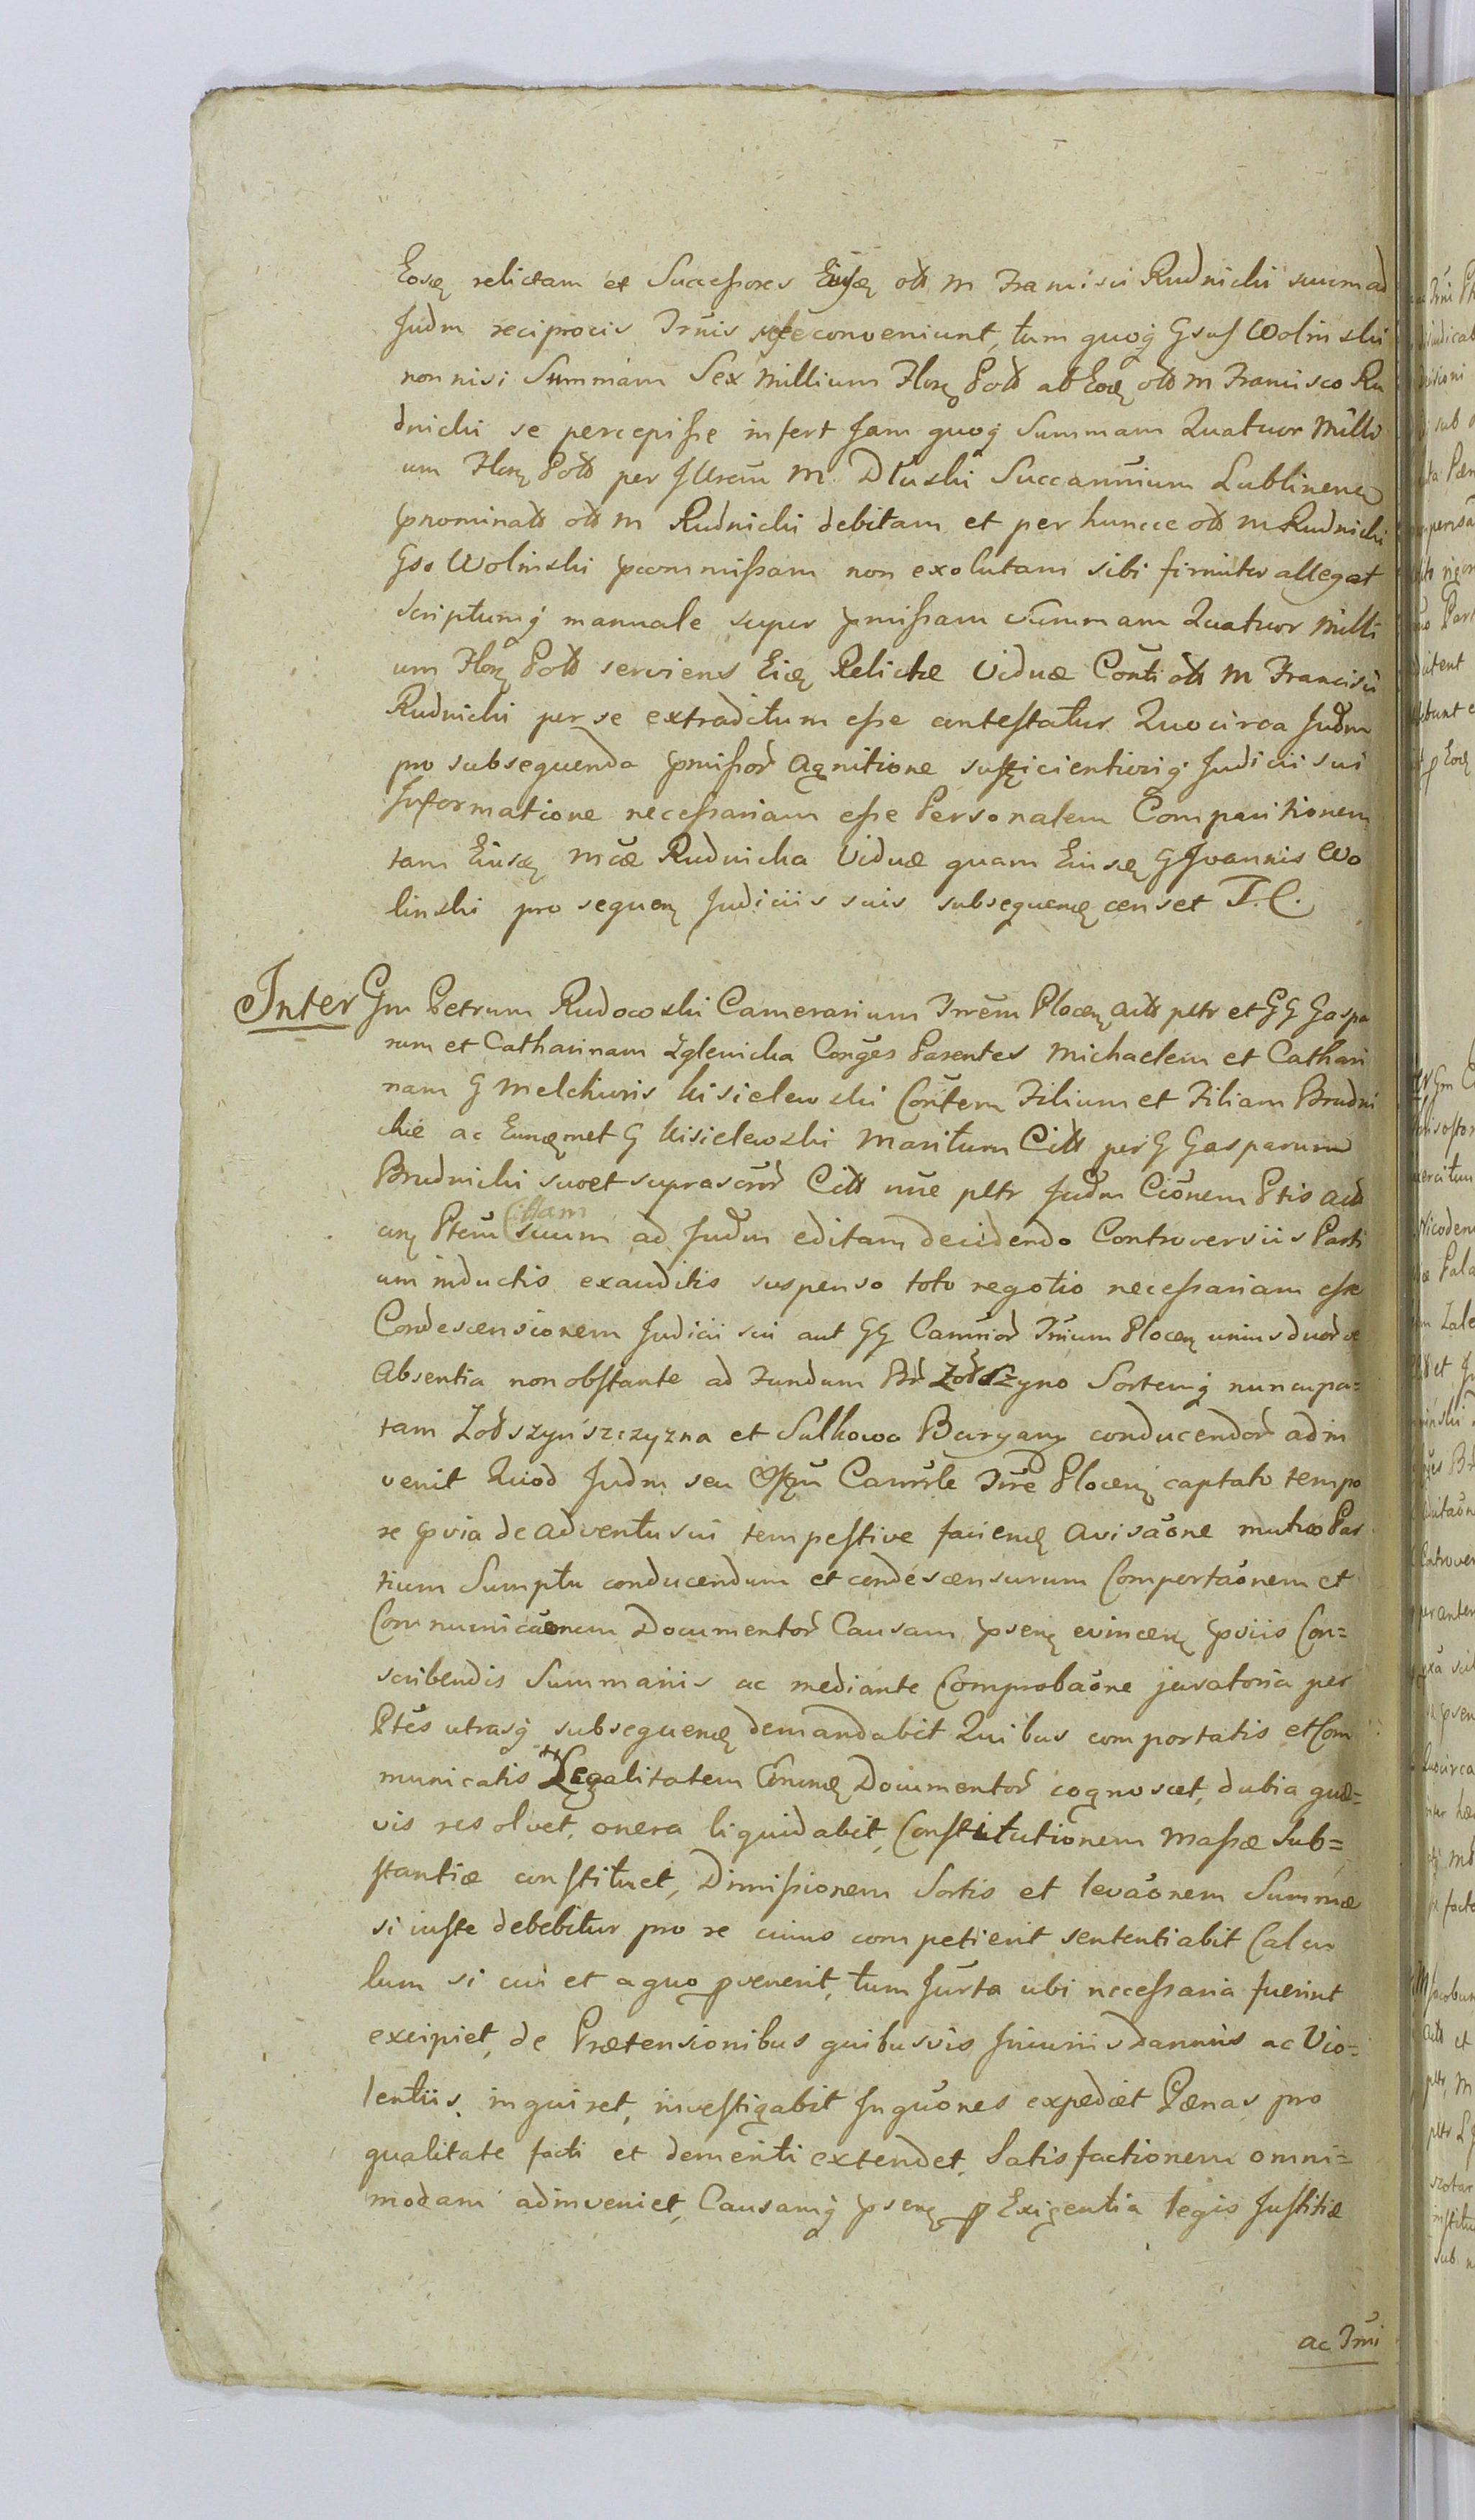 Eosq relictam et Successores Eiusq olt M Francisci Rudnicki suum ad
Judm reciprocis Trnis se conveniunt, tum quoq Gsus Wolinski
non nisi Summam Sex Millium Flor Polt ab Eoq olt M Francisco Ru
dnicki se percepisse infert Jam quoq Summam Quatuor Milli
um Flor Polt per M. Dłuski Succamrium Lublinen
pnominat olt M Rudnicki debitam et per huncce olt M Rudnicki
Gso Wolinski pcommissam non exolutam sibi firmiter allegat
scriptumq manuale super pmissam summam Quatuor Milli
um Flor Polt serviens Eiq Relictæ Viduæ Conti olt M Francisci
Rudnicki per se extraditum esse contestatur Quocirca Judm
pro subsequenda pmissor Agnitione sufficientioriq Judicii sui
Informatione necessariam esse Personalem Comparitionem
tam Eiusq Mcæ Rudnicka Viduæ quam Eiusq G Joannis Wo
linski pro sequen Judiciis suis subsequenq censet T. C.
Inter Gm Petrum Rudowski Camerarium Trrem Plocen actt pltr et GG Gaspa
rum et Catharinam Zglenicka Conges Parentes Michaelem et Cathari
nam G Melchioris Kisielewski Contem Filium et Filiam Brudni
ckie ac Eumqmet G Kisielewski Maritum Citt per G Gasparum
Brudnicki suo et suprascror Citt nne pltr Judm Cionem Ptis actt
crq Ptem Cittam suum ad Judm editam decidendo Controversiis Parti
um inductis exauditis suspenso toto negotio necessariam esse
Condescensionem Judicii sui aut GG Camrior Trrium Plocen unius duorve
Absentia non obstante ad Fundum Br Zołdszyno Sortemq nuncupa=
tam Zołszyńszczyzna et Sulkowo Baryany conducendor adin
venit Quod Judm seu Offm Camrrle Trre Plocen captato tempo
re pvia de adventu sui tempestive facienq avisaone mutuo Par
tium Sumptu conducendum et condescensurum Comportaonem et
Communicaonem Documentor Causam psenq evincenq pviis Con=
scribendis Summariis ac mediante Comprobaone juratoria per
Ptes utrasq subsequenq demandabit Quibus comportatis et Com
municatis Legalitatem Documentor cognoscet, dubia quæ=
vis resolvet, onera liquidabit, Constitutionem Massæ Sub=
stantiæ constituet, Dimissionem Sortis et levaonem Summæ
si iuste debebitur pro re cuius competierit sententiabit Calcu
lum si cui et a quo pvenerit, tum Jurta ubi necessaria fuerint
excipiet, de Prætensionibus quibusvis Injuriis damnis ac Vio=
lentiis, inquiret, investigabit Inquones expediet Pœnas pro
qualitate facti et demeriti extendet, Satisfactionem omni=
modam adinveniet, Causamq psenq p Exigentia legis Justitiæ
ac Trni